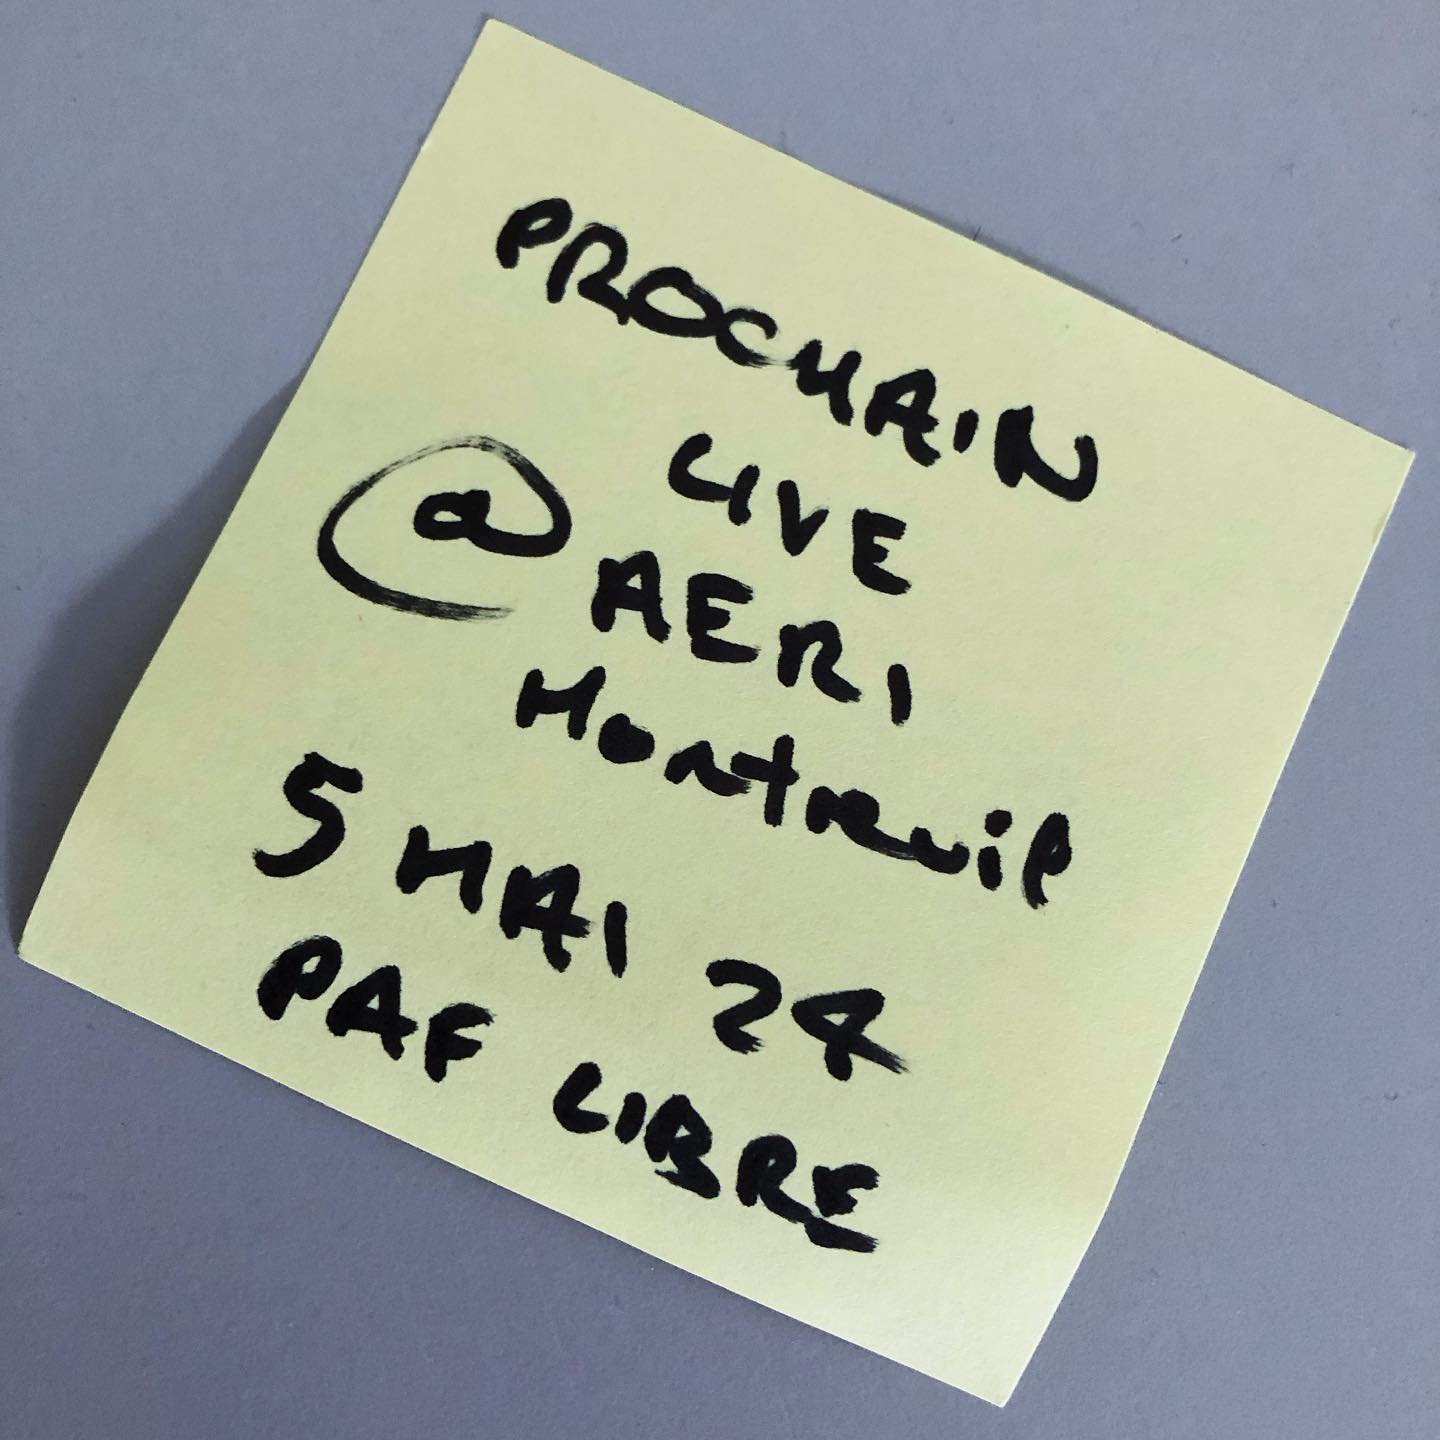 PROCHAIN
LIVE
@ AERI
Montreuil
5 MAI 24
PAF LIBRE